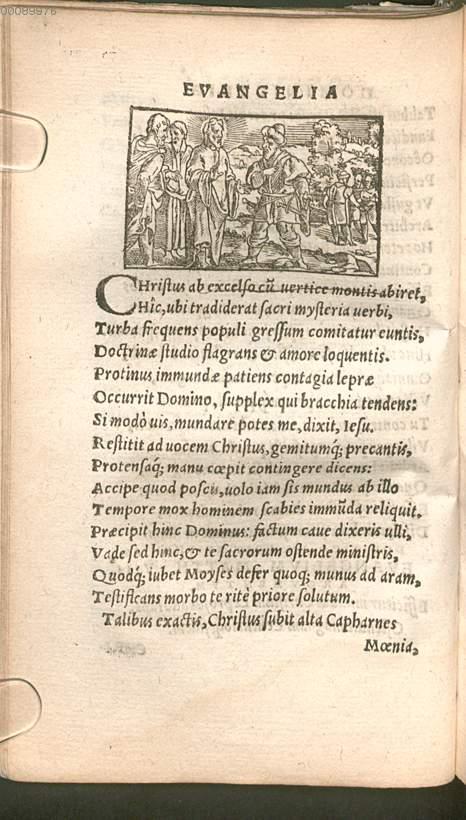 00089976
EVANGELIA
CHristus ab excelso cũ vertice montis abiret,
Hic, ubi tradiderat sacri mysteria verbi,
Turba frequens populi gressum comitatur euntis,
Doctrinæ studio flagrans & amore loquentis.
Protinus immundæ patiens contagia lepræ
Occurrit Domino, supplex qui bracchia tendens:
Si modò uis, mundare potes me, dixit, Iesu.
Restitit ad uocem Christus, gemitumq́; precantis,
Protensaq́; manu cœpit contingere dicens:
Accipe quod poscis, uolo iam sis mundus ab illo
Tempore mox hominem scabies immũda reliquit,
Præcipit hinc Dominus: factum caue dixeris ulli,
Vade sed hinc, & te sacrorum ostende ministris,
Quodq́; iubet Moyses defer quoq; munus ad aram,
Testificans morbo te ritè priore solutum.
Talibus exactis, Christus subit alta Capharnes
Mœnia,